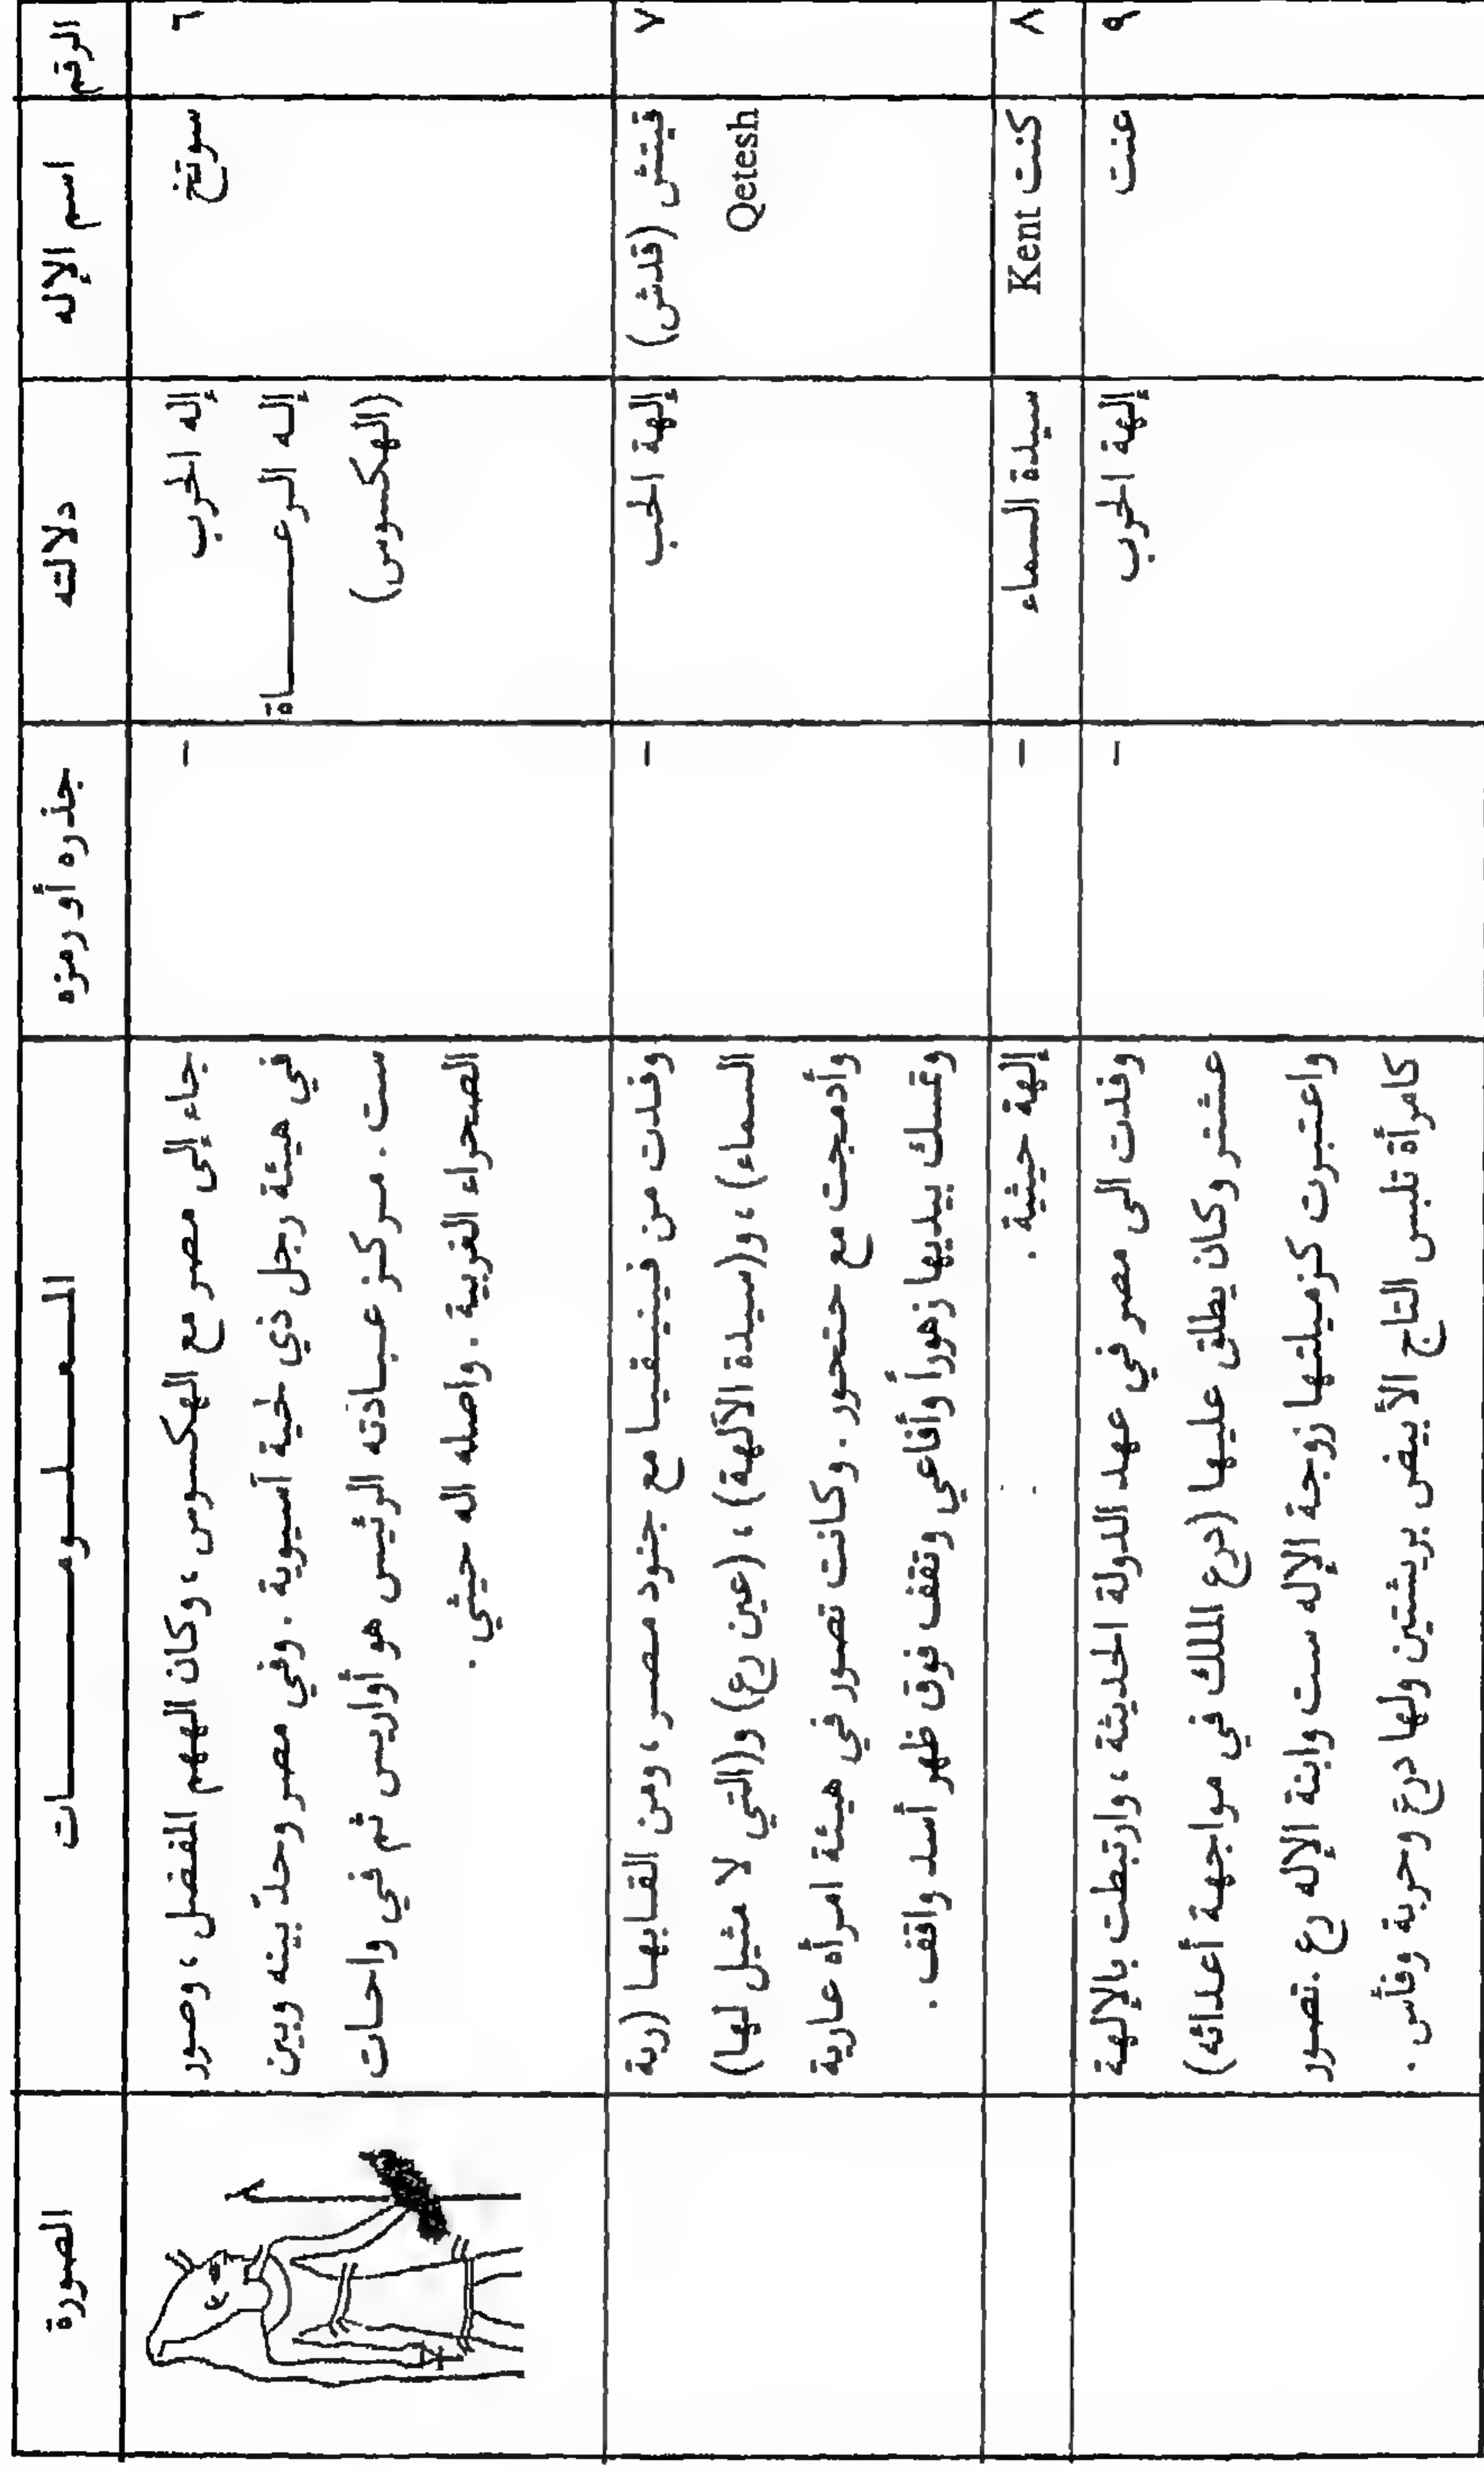 الرقم
اسم الإله
دلالته
جذره أو رمزه
المعلومات
الصورة
٦
سوتخ
إله الحرب
إله الرعاة
(الهكسوس)
-
جاء إلى مصر مع الهكسوس ، وكان الههم المفضل ، وصور
في هيئة رجل ذي لحية آسيوية . وفي مصر وحدّ بينه وبين
ست . مركز عبادته الرئيس هو أواريس ثم في واحات
الصحراء الغربية . واصله اله حيثي .
٧
قيتش (قدش)
Qetesh
إلهة الحب
-
وفدت من فينيقيا مع جنود مصر ، ومن القابها (ربة
السماء) ، و(سيدة الآلهة) ، (عين رع) و(التي لا مثيل لها)
وأدمجت مع حتحور . وكانت تصور في هيئة امرأه عارية
وتمسك بيديها زهوراً وأفاعي وتقف فوق ظهر أسد واقف .
٨
كنت Kent
سيدة السماء
-
إلهة حيثية .
٩
عنت
إلهة الحرب
-
وفدت الى مصر في عهد الدولة الحديثة ، وارتبطت بالإلهة
عشتر وكان يطلق عليها (درع الملك في مواجهة أعدائه)
واعتبرت كزميلتها زوجة الإله ست وابنة الإله رع .تصور
كامرأة تلبس التاج الأبيض بريشتين ولها درع وحربة وفأس .